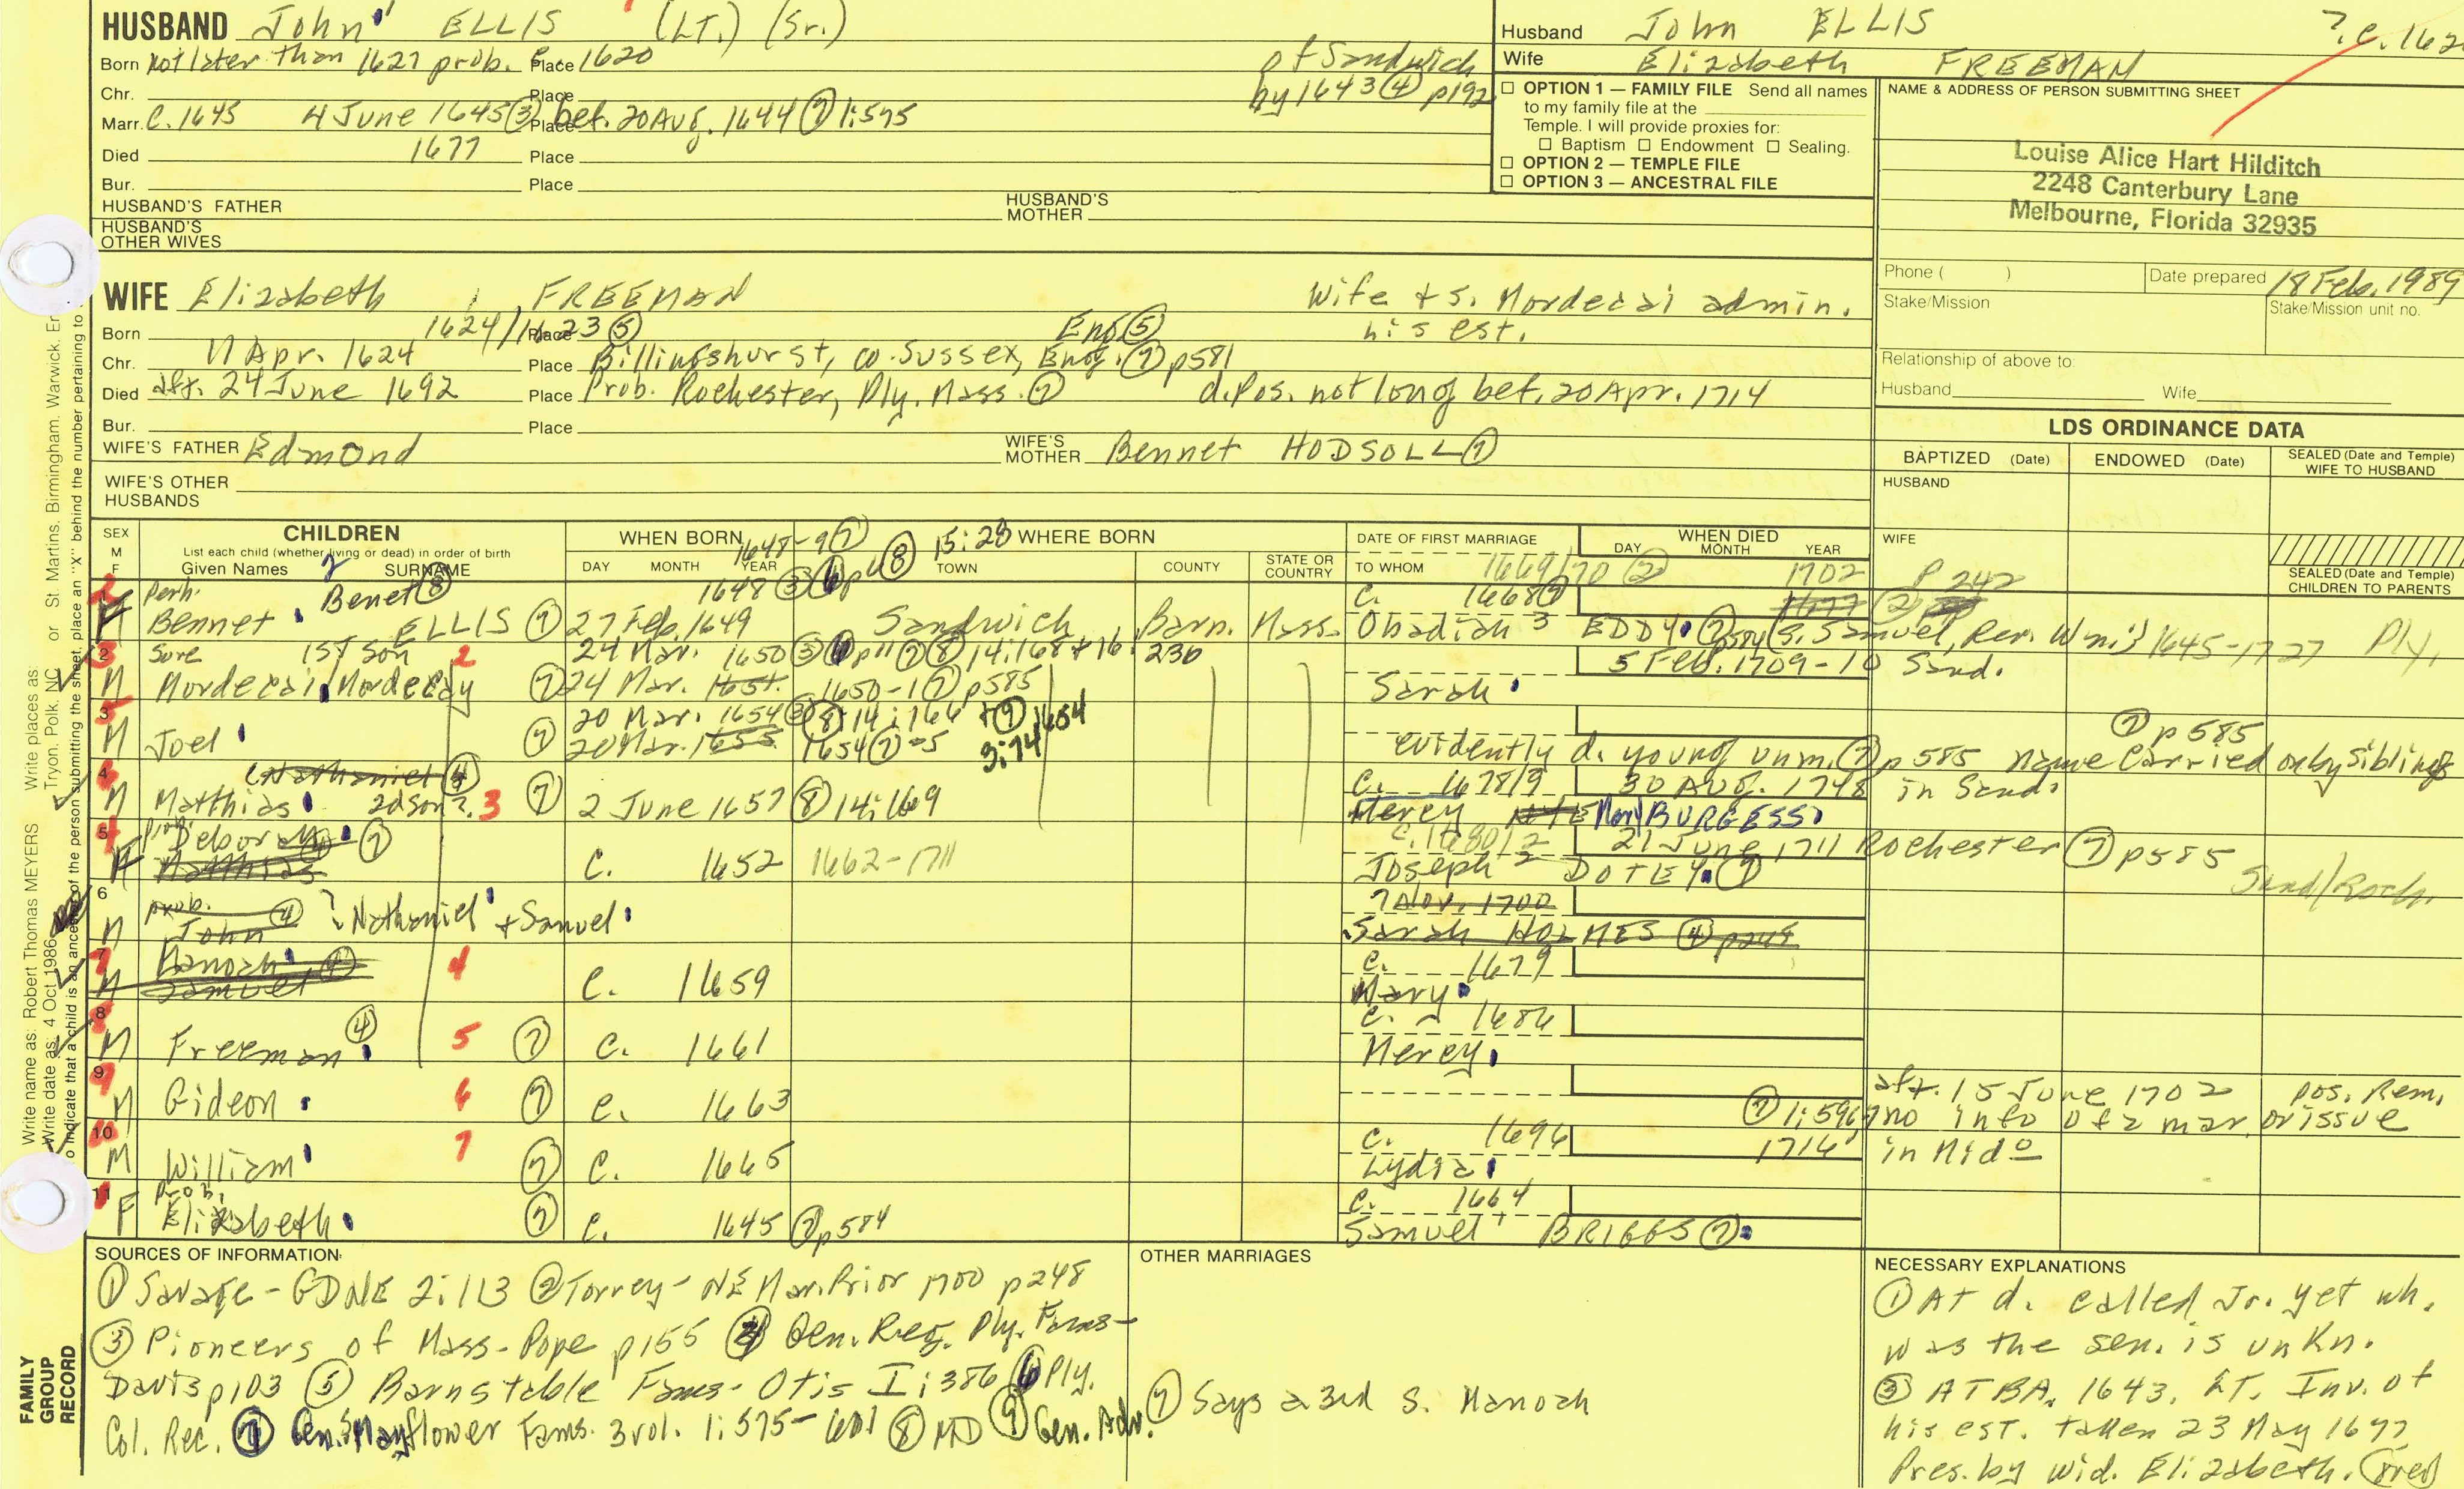 HUSBAND John ELLIS (LT.) (Sr.)
Born Not later than 1627 prob. c. 1620 Place
of Sandwich
by 1643 ④ p192
Chr. Place
Marr. C. 1645 4 June 1645 ③ Place bef. 20 Aug. 1644 ⑦ 1:575
Died 1677 Place
Bur. Place
HUSBAND'S FATHER
HUSBAND'S MOTHER
HUSBAND'S OTHER WIVES
Husband John ELLIS
Wife Elizabeth FREEMAN
? c. 162
☐ OPTION 1 — FAMILY FILE Send all names
to my family file at the
Temple. I will provide proxies for:
☐ Baptism ☐ Endowment ☐ Sealing.
☐ OPTION 2 — TEMPLE FILE
☐ OPTION 3 — ANCESTRAL FILE
NAME & ADDRESS OF PERSON SUBMITTING SHEET
Louise Alice Hart Hilditch
2248 Canterbury Lane
Melbourne, Florida 32935
Phone ( ) Date prepared 18 Feb. 1989
Stake/Mission Stake/Mission unit no.
Relationship of above to:
Husband Wife
WIFE Elizabeth FREEMAN
Wife + s. Mordecai admin.
his est.
Born 1624/1623 ⑤ Place Eng ⑤
Chr. 11 Apr. 1624 Place Billingshurst, co. Sussex, Eng. ⑦ p581
Died aft. 24 June 1692 Place Prob. Rochester, Ply. Mass. ⑦ d. pos. not long bef. 20 Apr. 1714
Bur. Place
WIFE'S FATHER Edmond
WIFE'S MOTHER Bennet HODSOLL ⑦
WIFE'S OTHER HUSBANDS
LDS ORDINANCE DATA
BAPTIZED (Date) ENDOWED (Date) SEALED (Date and Temple) WIFE TO HUSBAND
HUSBAND
WIFE
SEALED (Date and Temple) CHILDREN TO PARENTS
SEX M F
CHILDREN
List each child (whether living or dead) in order of birth
Given Names SURNAME
WHEN BORN
DAY MONTH YEAR
WHERE BORN
TOWN COUNTY STATE OR COUNTRY
DATE OF FIRST MARRIAGE
TO WHOM
WHEN DIED
DAY MONTH YEAR
1648-9 ⑦ 15:28
Perh. Benet ⑧ 1648 ③ 1669/70 ② 1702 p 242
Bennet ELLIS ⑦ 27 Feb. 1649 Sandwich Barn. Mass. C. 1668 ⑦ 1677 ②
Obadiah 3 EDDY ⑦ (s. Samuel, Rev. Wm.) 1645-1727 Ply.
2 Sure 1ST Son 2 24 Mar. 1650 ③ p11 ⑦ ⑧ 14:168 + 16:230 5 Feb. 1709-10 Sand.
M Mordecai, Mordecay ⑦ 24 Mar. 1651. 1650-1 ⑦ p585 Sarah
3 20 Mar. 1654 ③ ⑧ 14:166 + ⑨ 1654 3:74
M Joel ⑦ 20 Mar. 1655 1654 ⑦ -5 evidently d. young unm. ⑦ p585 name carried on by siblings
⑦ p585
4 Nathaniel ④ C. 1678/9 30 Aug. 1748 in Sand.
M Matthias 2d Son?. 3 ⑦ 2 June 1657 ⑧ 14:169 Mercy NYE Mary BURGESS
5 prob Deborah ⑦ C. 1680/2 21 June 1711 Rochester ⑦ p585
F Matthias C. 1652 1662-1711 Joseph 2 DOTEY ⑦ Sand/Roch.
6 prob. ④ ? Nathaniel + Samuel 7 Nov. 1700
M John Sarah HOLMES ④ p245
7 Manoah ④ 4 C. 1659 C. 1679
M Samuel Mary
8 ④ C. 1686
M Freeman 5 ⑦ C. 1661 Mercy
9
M Gideon 6 ⑦ C. 1663 aft. 15 June 1702 pos. Rem.
⑦ 1:596, no info of a mar. or issue
10 C. 1696 1716 in Mid
M William 7 ⑦ C. 1665 Lydia
11 prob. C. 1664
F Elizabeth ⑦ C. 1645 ⑦ p584 Samuel BRIGGS ⑦
SOURCES OF INFORMATION:
① Savage - GDNE 2:113 ② Torrey - NE Mar. Prior 1700 p248
③ Pioneers of Mass - Pope p155 ④ Gen. Reg. Ply. Fams -
Davis p103 ⑤ Barnstable Fams - Otis I:386 ⑥ Ply.
Col. Rec. ⑦ Gen. Mayflower Fams. 3 vol. 1:575-601 ⑧ MD ⑨ Gen. Adv.
OTHER MARRIAGES
⑦ Says a 3rd s. Manoah
NECESSARY EXPLANATIONS
① At d. called Jr. yet wh.
was the sen. is unkn.
③ ATBA. 1643. LT. Inv. of
his est. taken 23 May 1677
Pres. by wid. Elizabeth.
FAMILY GROUP RECORD
Write name as: Robert Thomas MEYERS Write places as: Tryon, Polk, NC or St. Martins, Birmingham, Warwick, En
Write date as: 4 Oct 1986
o indicate that a child is an ancestor of the person submitting the sheet, place an "X" behind the number pertaining to